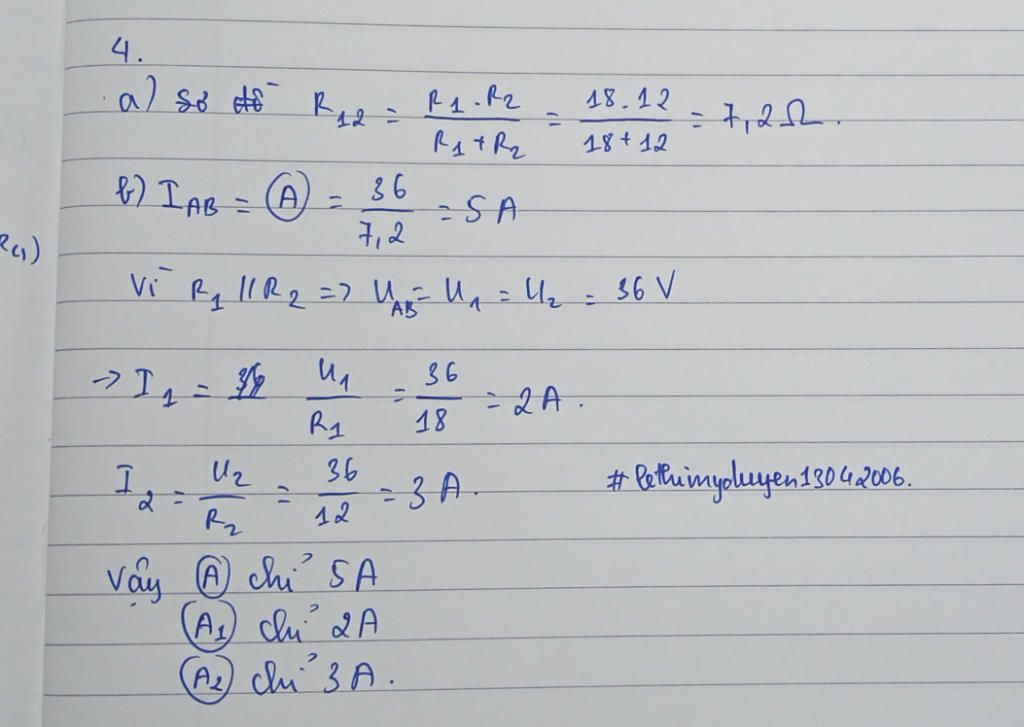 4.
a) R12 = R1.R2 / R1+R2 = 18.12 / 18+12 = 7,2Ω.
b) IAB = (A) = 36 / 7,2 = 5A
Rc1)
Vì R1 // R2 => UAB = U1 = U2 = 36 V
→ I1 = U1 / R1 = 36 / 18 = 2A.
I2 = U2 / R2 = 36 / 12 = 3A.
#lethimyduyen13042006.
Vậy (A) chỉ 5A
(A1) chỉ 2A
(A2) chỉ 3A.